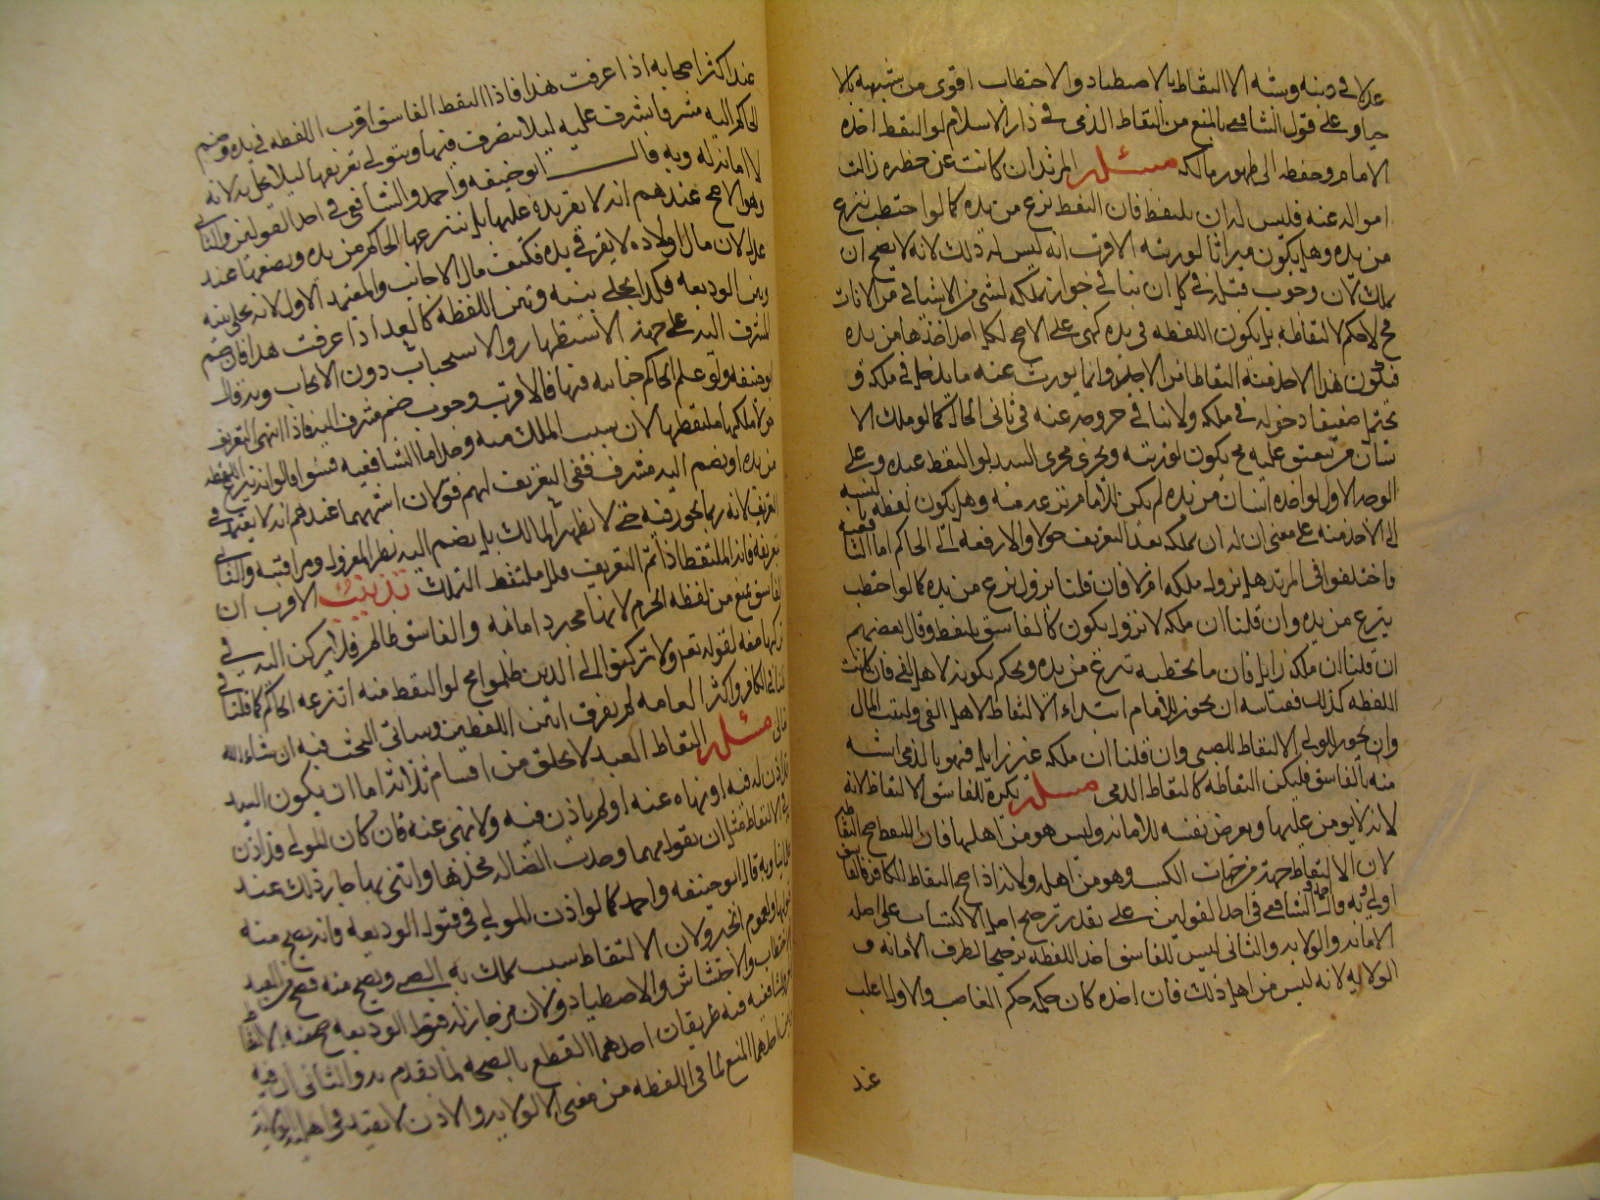 عدلا في دينه وشبه الالتقاط بالاصطياد والاحتطاب اقوى من شبهه بالا
حياء وعلى قول الشافعي بالمنع من التقاط الذمي في دار الاسلام لو التقط اخذه
الامام وحفظه الى ظهور مالكه مسئلة المرتد ان كانت عن حظره زالت
امواله عنه فليس له ان يلتقط فان التقط نزع من يده كما لو احتطب ينزع
من يده وهل يكون ميراثا لورثته الاقرب انه ليس له ذلك لانه لا يصح ان
يملك لان وجوب قتله في كل ان ينافي جواز تملكه لشئ من الاشياء في من الانات
فح لا حكم لالتقاطه بل يكون اللقطه في يده كهى على الاصح لكل احد اخذها من يده
فيكون هذا الاخذ منه التقاطا من الاجنبي وانما يورث عنه ما يدخل في ملكه و
دخوله في ملكه ولا ينافي خروجه عنه في ثاني الحال كما لو ملك الا
نسان من ينعتق عليه فح يكون لورثته ويجري مجرى السيد لو التقط عبده وعلى
الوجه الاول لو اخذه انسان من يده لم يكن للامام نزعه منه وهل يكون لقطه بالنسبه
الى الاخذ منه على معنى ان له ان يملكه بعد التعريف حولا والا رفعه الى الحاكم اما الشافعيه
فاختلفوا في المرتد هل يزول ملكه ام لا فان قلنا يزول نزع من يده كما لو احتطب
ينزع من يده وان قلنا ان ملكه لا يزول يكون كالفاسق يلتقط وقال بعضهم
ان قلنا ان ملكه زايل فان ما يحتطبه ينزع من يده ويحكم بكونه لاهل الفئ فان كانت
اللقطه كذلك فقياسه ان يجوز للامام ابتداء الالتقاط لاهل الفئ ولبيت المال
وان يجوز للولي الالتقاط للصبي وان قلنا ان ملكه غير زايل فهو بالذمي اشبه
منه بالفاسق فليكن التقاطه كالتقاط الذمي مسئلة يكره للفاسق الالتقاط لانه
لانه لا يؤمن عليها ويعرض نفسه للامانه وليس هو من اهلها فان التقط صح التقاطه
لان الالتقاط جهة من جهات الكسب وهو من اهله ولانه اذا صح التقاط الكافر فالفاسق
اولى وبه قال الشافعي في احد القولين على تقدير ترجيح اصل الاكتساب على اصل
الامانه والولايه والثاني ليس للفاسق اخذ اللقطه ترجيحا لطرف الامانه و
الولايه لانه ليس من اهل ذلك فان اخذه كان حكمه حكم الغاصب والاول اغلب
عند
عند اكثر اصحابه اذا عرفت هذا فاذا التقط الفاسق اقرت اللقطه في يده وضم
الحاكم اليه مشرفا يشرف عليه ليلا يتصرف فيها ويتولى تعريفها ليلا يخل به لانه
لا امانه له وبه قال ابو حنيفه واحمد والشافعي في احد القولين والثاني
وهو الاصح عندهم انه لا تقر يده عليها بل ينتزعها الحاكم من يده ويضعها عند
عدل لان مال اولاده لا يقر في يده فكيف مال الاجانب والمعتمد الاول لانه يخلى بينه
وبين الوديعه فكذا يخلى بينه وبين اللقطه كالعدل اذا عرفت هذا فان ضم
المشرف اليه على جهة الاستظهار والاستحباب دون الايجاب وبه قال
ابو حنيفه ولو علم الحاكم خيانته فيها فالاقرب وجوب ضم مشرف اليه فاذا انتهى التعريف
حولا ملكها ملتقطها لان سبب الملك منه وجد اما الشافعيه فسواء قالوا انه ينزع اللقطه
من يده او يضم اليه مشرف ففي التعريف لهم قولان اشهرهما عندهم انه لا يعتمد في
التعريف لانه ربما يخون فيه حتى لا يظهر المالك بل يضم اليه نظر العدل ومراقبته والثاني
تعريفه فانه الملتقط اذا تم التعريف فللملتقط التملك تذنيب الاقرب ان
الفاسق يمنع من لقطه الحرم لانها مجرد امانه والفاسق ظالم فلا يركن اليه في
تركها معه لقوله تعم ولا تركنوا الى الذين ظلموا فح لو التقط منه انتزعه الحاكم كما قلنا في
الكافر واكثر العامه لم يفرق بين اللقطتين وسياتي البحث فيه ان شاء الله
تعالى مسئلة التقاط العبد لا يخلو من اقسام ثلاثه اما ان يكون السيد
قد اذن له فيه او نهاه عنه او لم ياذن فيه ولا نهى عنه فان كان المولى قد اذن
في الالتقاط مثل ان يقول مهما وجدت الضاله فخذها وائتني بها جاز ذلك عند
علمائنا وبه قال ابو حنيفه واحمد كما لو اذن المولى في قبول الوديعه فانه يصح منه
قبولها ولعموم الخبر ولان الالتقاط سبب يملك به الصبي ويصح منه فصح من العبد
كالاحتطاب والاحتشاش والاصطياد ولان من جاز له قبول الوديعه صح منه الالتقاط
وللشافعيه فيه طريقان احدهما القطع بالصحه لما تقدم والثاني ان فيه
قولين احدهما المنع لما في اللقطه من معنى الولايه والاذن لا يفيد في اهليه الولايه